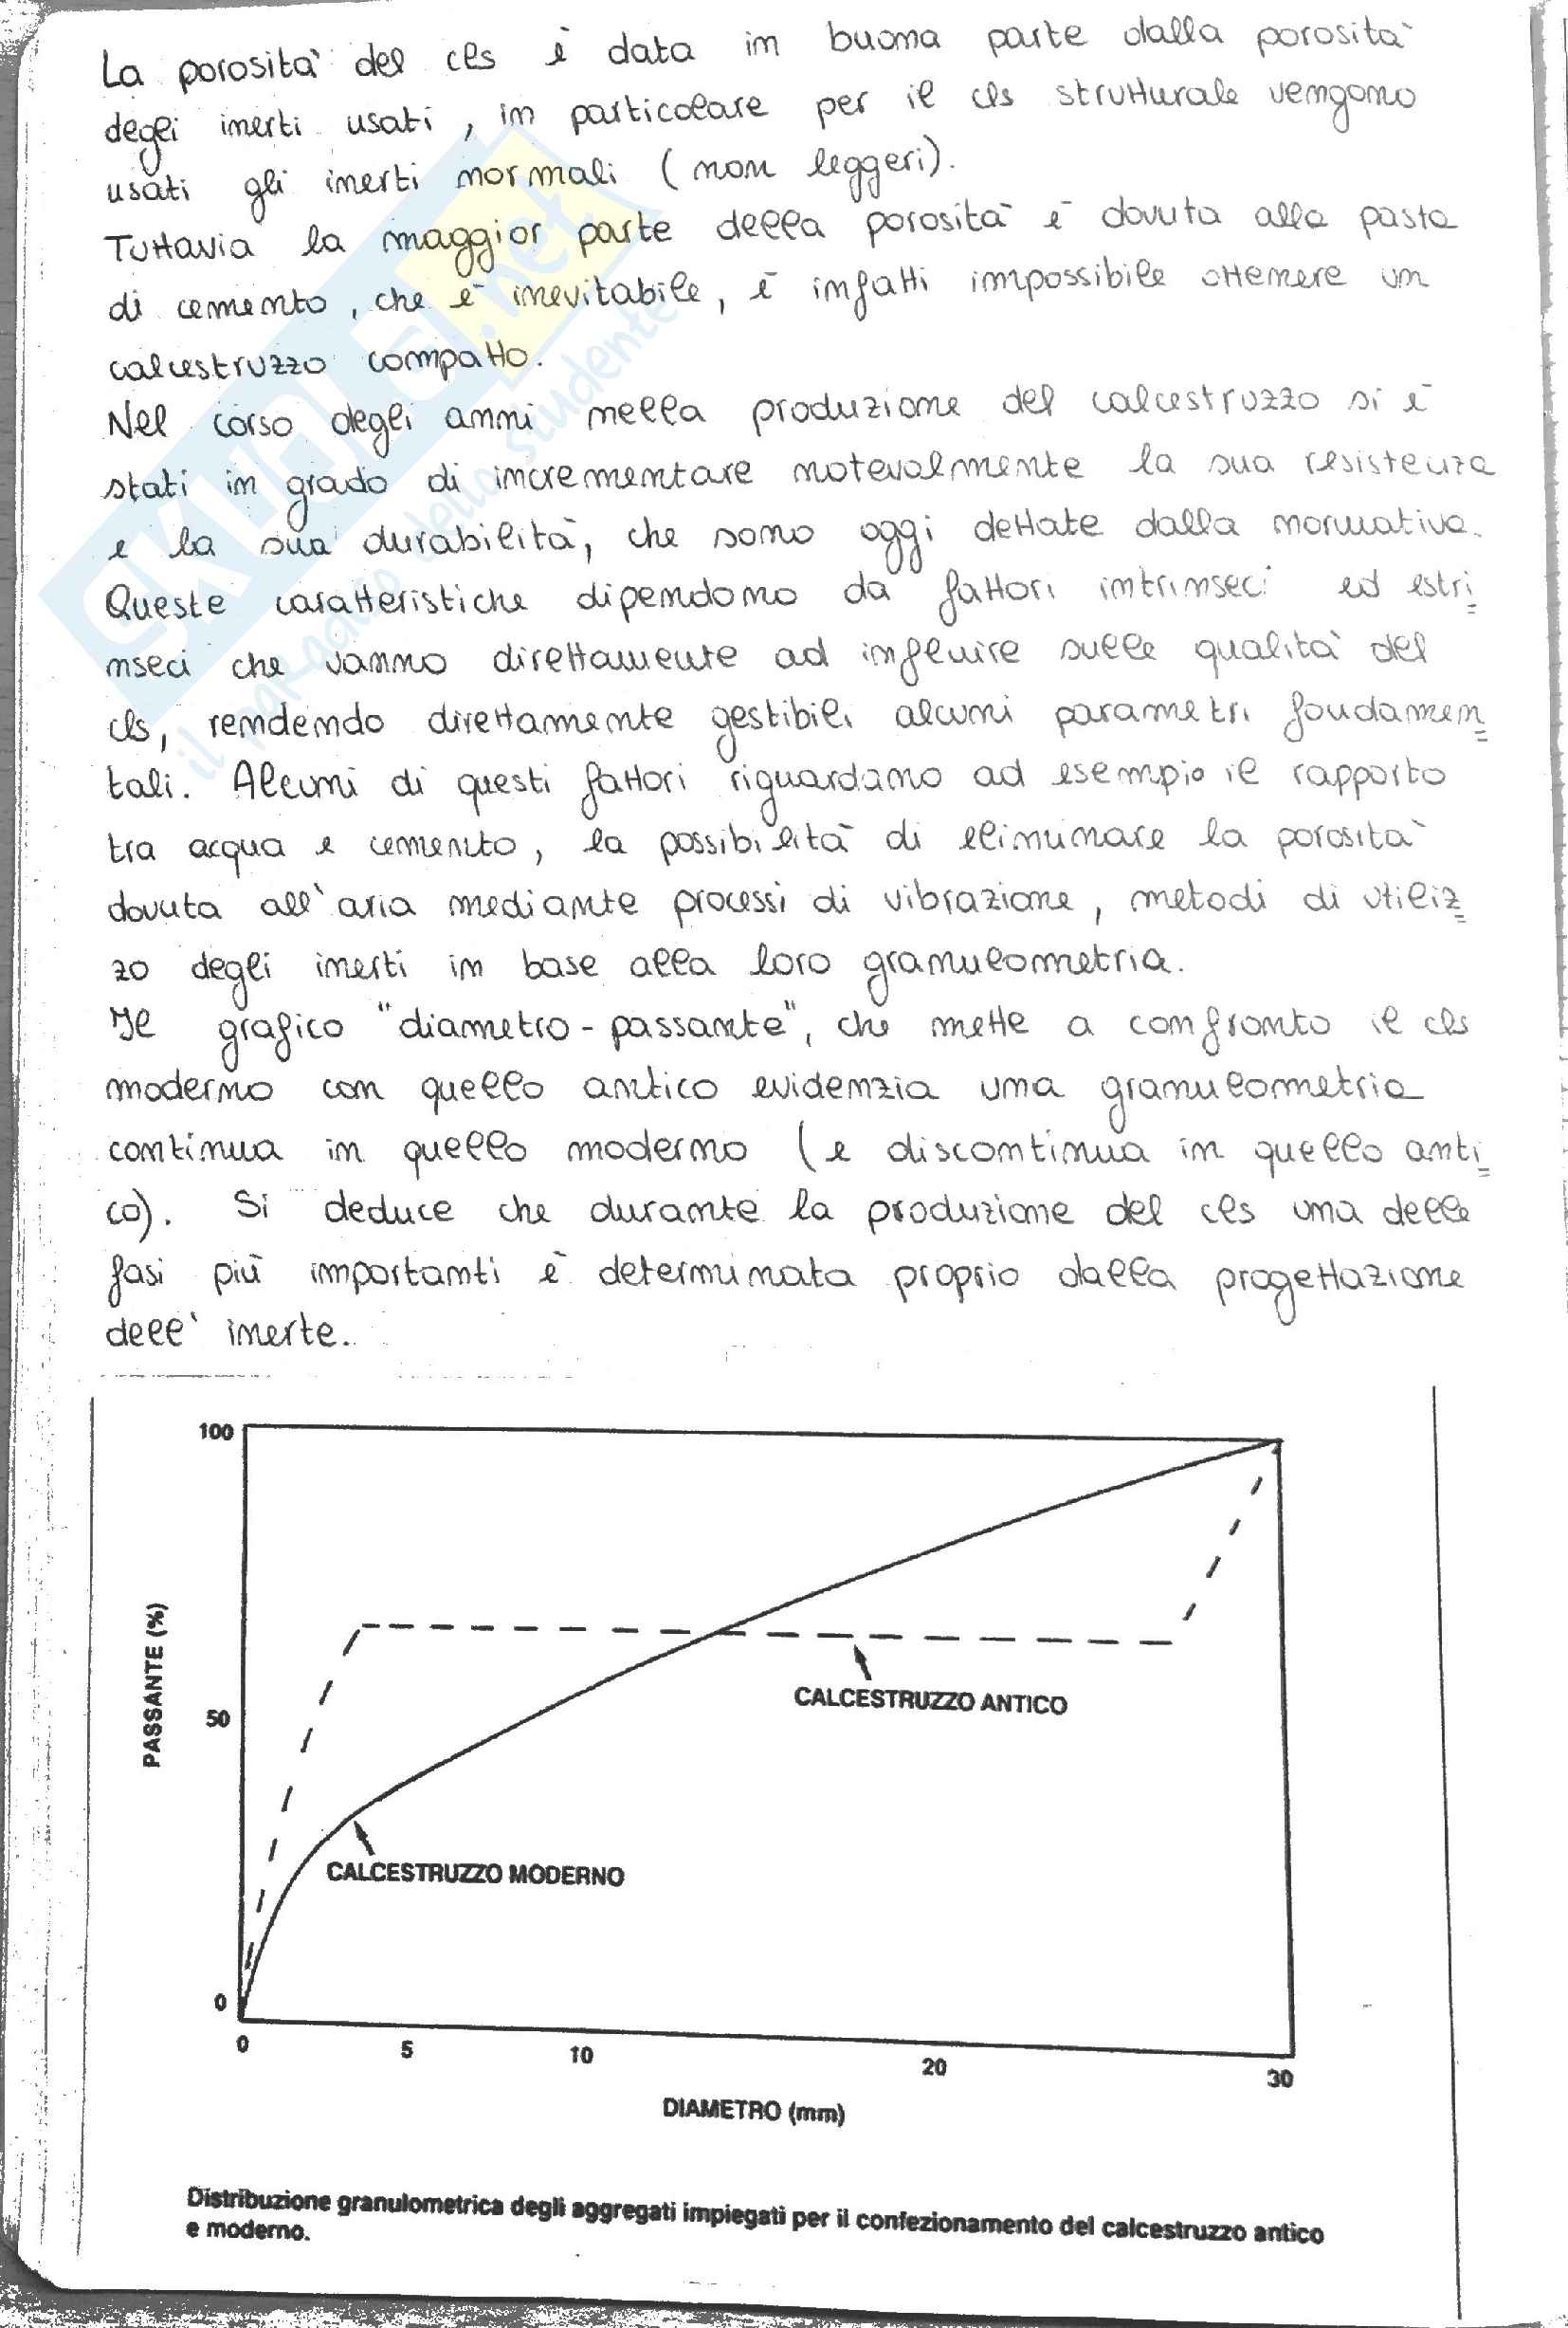 La porosità del cls è data in buona parte dalla porosità
degli inerti usati, in particolare per il cls strutturale vengono
usati gli inerti normali (non leggeri).
Tuttavia la maggior parte della porosità è dovuta alla pasta
di cemento, che è inevitabile, è infatti impossibile ottenere un
calcestruzzo compatto.
Nel corso degli anni nella produzione del calcestruzzo si è
stati in grado di incrementare notevolmente la sua resistenza
e la sua durabilità, che sono oggi dettate dalla normativa.
Queste caratteristiche dipendono da fattori intrinseci ed estri
nseci che vanno direttamente ad influire sulle qualità del
cls, rendendo direttamente gestibili alcuni parametri fondamen
tali. Alcuni di questi fattori riguardano ad esempio il rapporto
tra acqua e cemento, la possibilità di eliminare la porosità
dovuta all'aria mediante processi di vibrazione, metodi di utiliz
zo degli inerti in base alla loro granulometria.
Il grafico "diametro-passante", che mette a confronto il cls
moderno con quello antico evidenzia una granulometria
continua in quello moderno (e discontinua in quello anti
co). Si deduce che durante la produzione del cls una delle
fasi più importanti è determinata proprio dalla progettazione
dell'inerte.
SKUOLA.net
il paradiso dello studente
100
PASSANTE (%)
CALCESTRUZZO ANTICO
50
CALCESTRUZZO MODERNO
0
0 5 10 20 30
DIAMETRO (mm)
Distribuzione granulometrica degli aggregati impiegati per il confezionamento del calcestruzzo antico
e moderno.